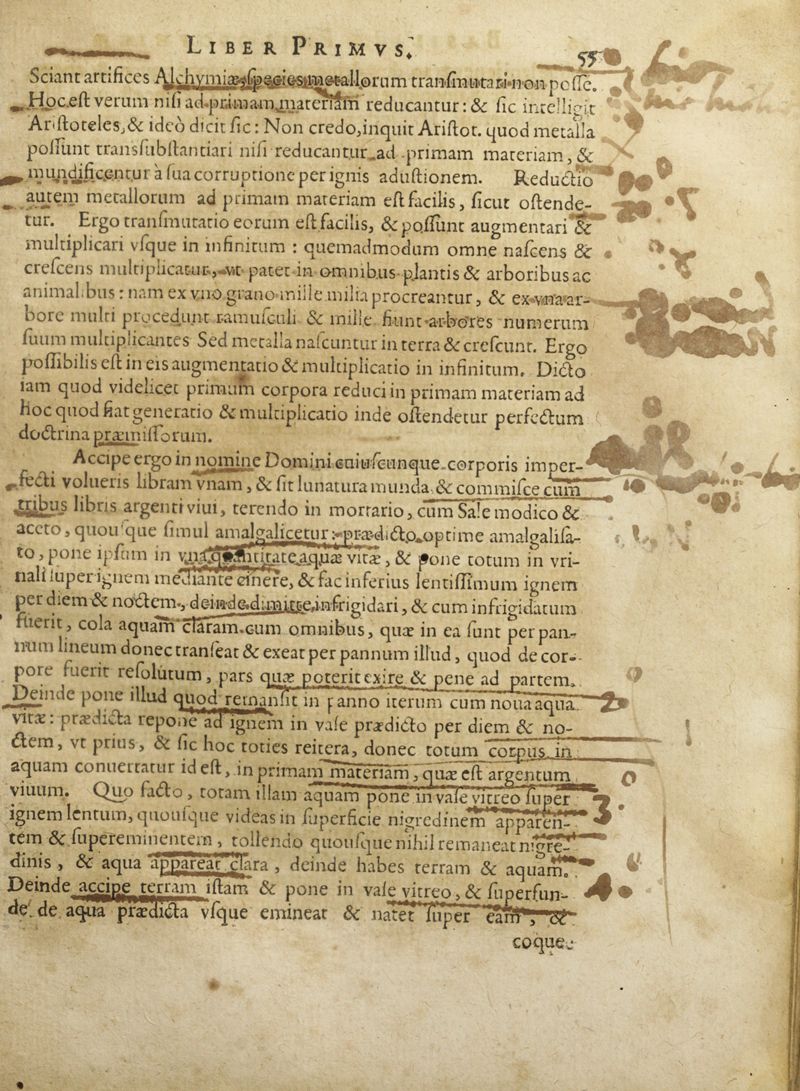 LIBER PRIMVS. 55
Sciant artifices Alchymiæ, species metallorum transmutari non posse.
Hoc est verum nisi ad primam materiam reducantur: & sic intelligit
Aristoteles, & ideò dicit sic: Non credo, inquit Aristot. quod metalla
possunt transsubstantiari nisi reducantur ad primam materiam, &
mundificentur à sua corruptione per ignis adustionem. Reductio
autem metallorum ad primam materiam est facilis, sicut ostende-
tur. Ergo transmutatio eorum est facilis, & possunt augmentari &
multiplicari vsque in infinitum : quemadmodum omne nascens &
crescens multiplicatur, vt patet in omnibus plantis & arboribus ac
animalibus : nam ex vno grano mille milia procreantur, & ex vna ar-
bore multi procedunt ramusculi & mille fiunt arbores numerum
suum multiplicantes Sed metalla nascuntur in terra & crescunt. Ergo
possibilis est in eis augmentatio & multiplicatio in infinitum. Dicto
iam quod videlicet primum corpora reduci in primam materiam ad
hoc quod fiat generatio & multiplicatio inde ostendetur perfectum
doctrina præmissorum.
Accipe ergo in nomine Domini cuiuscunque corporis imper-
fecti volueris libram vnam, & sit lunatura munda & commisce cum
tribus libris argenti viui, terendo in mortario, cum Sale modico &
aceto, quousque simul amalgalicetur: prædicto optime amalgalisa-
to, pone ipsum in quantitate aquæ vitæ, & pone totum in vri-
nali super ignem mediante cinere, & fac inferius lentissimum ignem
per diem & noctem, deinde dimitte infrigidari, & cum infrigidatum
fuerit, cola aquam claram cum omnibus, quæ in ea sunt per pan-
num lineum donec transeat & exeat per pannum illud, quod de cor-
pore fuerit resolutum, pars quæ poterit exire & pene ad partem.
Deinde pone illud quod remansit in panno iterum cum noua aqua
vitæ: prædicta repone ad ignem in vase prædicto per diem & no-
ctem, vt prius, & sic hoc toties reitera, donec totum corpus in
aquam conuertatur id est, in primam materiam, quæ est argentum
viuum. Quo facto, totam illam aquam pone in vase vitreo super
ignem lentum, quousque videas in superficie nigredinem apparen-
tem & supereminentem, tollendo quousque nihil remaneat nigre-
dinis, & aqua appareat clara, deinde habes terram & aquam.
Deinde accipe terram istam & pone in vase vitreo, & superfun-
de de aqua prædicta vsque emineat & natet super eam, &
coque: